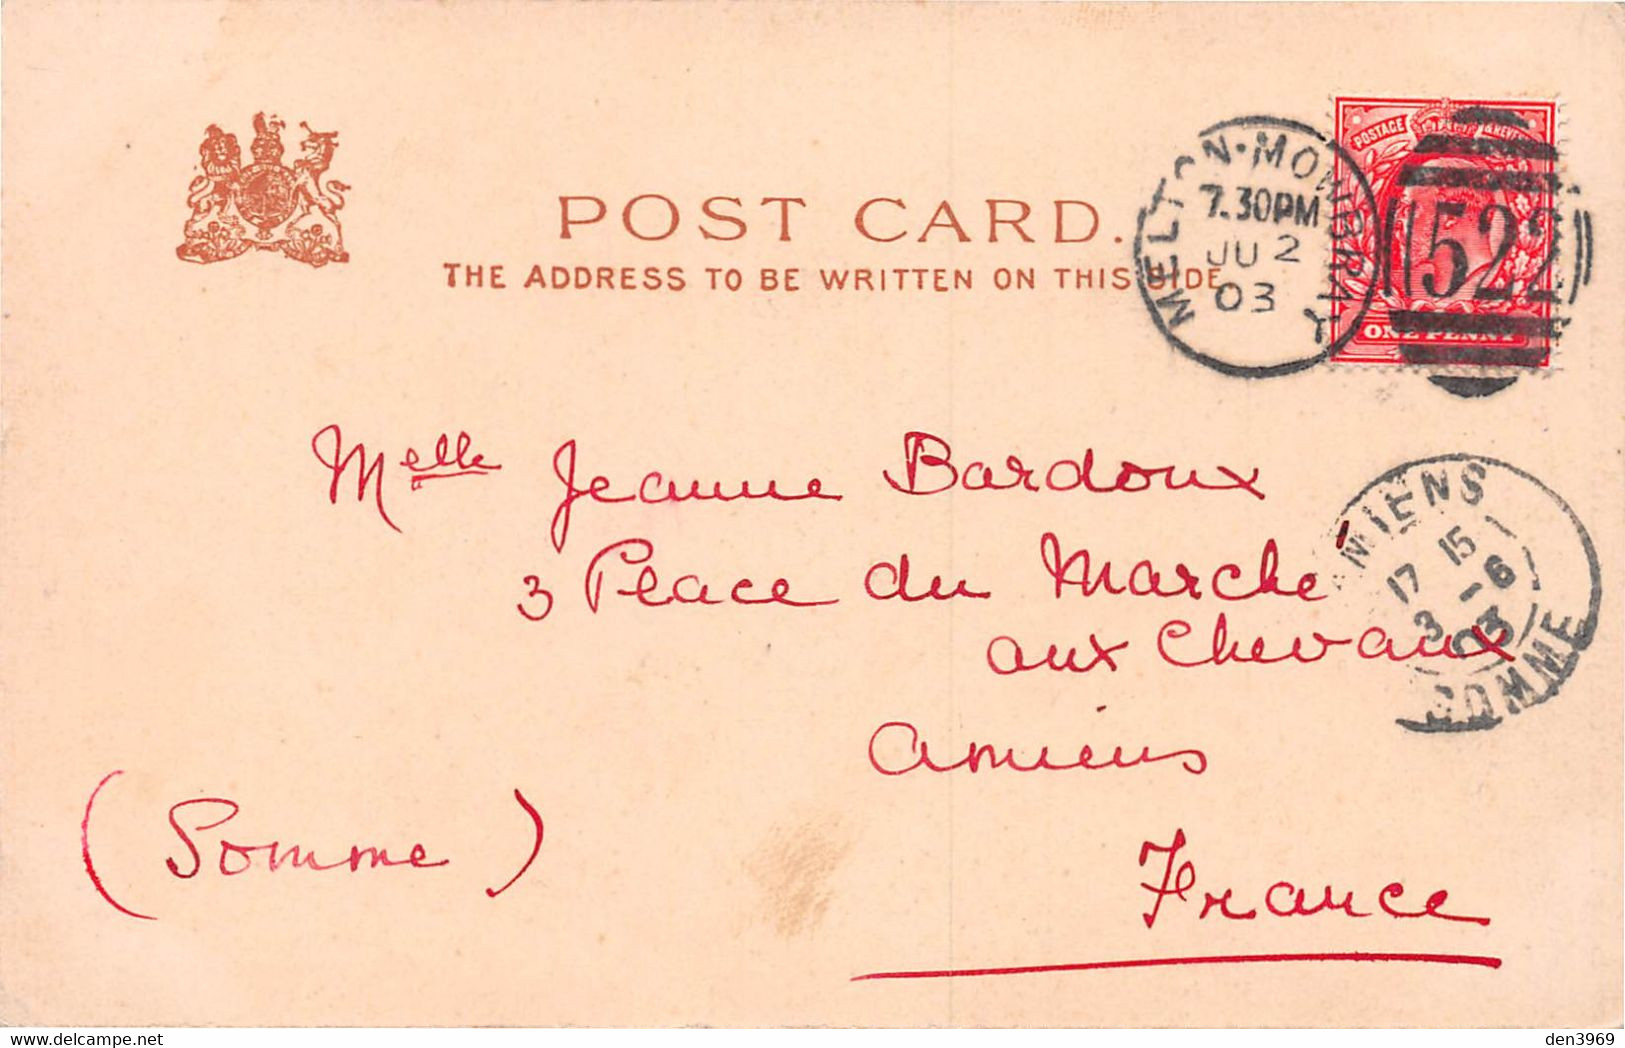 POST CARD.
THE ADDRESS TO BE WRITTEN ON THIS SIDE
MELTON·MOWBRAY
7.30PM
JU 2
03
POSTAGE & REVENUE
522
ONE PENNY
Melle Jeanne Bardoux
3 Place du Marché
aux Chevaux
Amiens
(Somme)
France
AMIENS
17 15
3 -6
03
SOMME
den3969